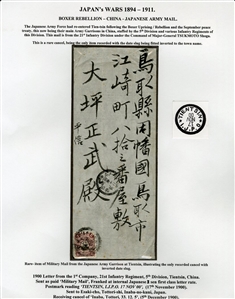 JAPAN'S WARS 1894 – 1911.
BOXER REBELLION – CHINA – JAPANESE ARMY MAIL.
The Japanese Army Force had re-entered Tientsin following the Boxer Uprising / Rebellion and the September peace
treaty, this now being their main Army Garrison in China, staffed by the 5th Division and various Infantry Regiments of
this Division. This mail is from the 21st Infantry Division under the Command of Major-General TSUKAMOTO Shoga.
This is a rare cancel, being the only item recorded with the date slug being fitted inverted to the town name.
鳥取縣因幡國鳥取市
江崎町八拾三番屋敷
大坪正武殿
平信
TIENTSIN
Rare- item of Military Mail from the Japanese Army Garrison at Tientsin, illustrating the only recorded cancel with
inverted date slug.
1900 Letter from the 1st Company, 21st Infantry Regiment, 5th Division, Tientsin, China.
Sent as paid 'Military Mail', Franked at internal Japanese 3 sen first class letter rate.
Postmark reading 'TIENTSIN, I.J.P.O. 17 NOV 00', (17th November 1900),
Sent to Ezaki-cho, Tottori-shi, Inaba-no-kuni, Japan.
Receiving cancel of 'Inaba, Tottori, 33. 12. 5', (5th December 1900).